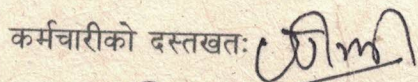 कर्मचारीको दस्तखतः